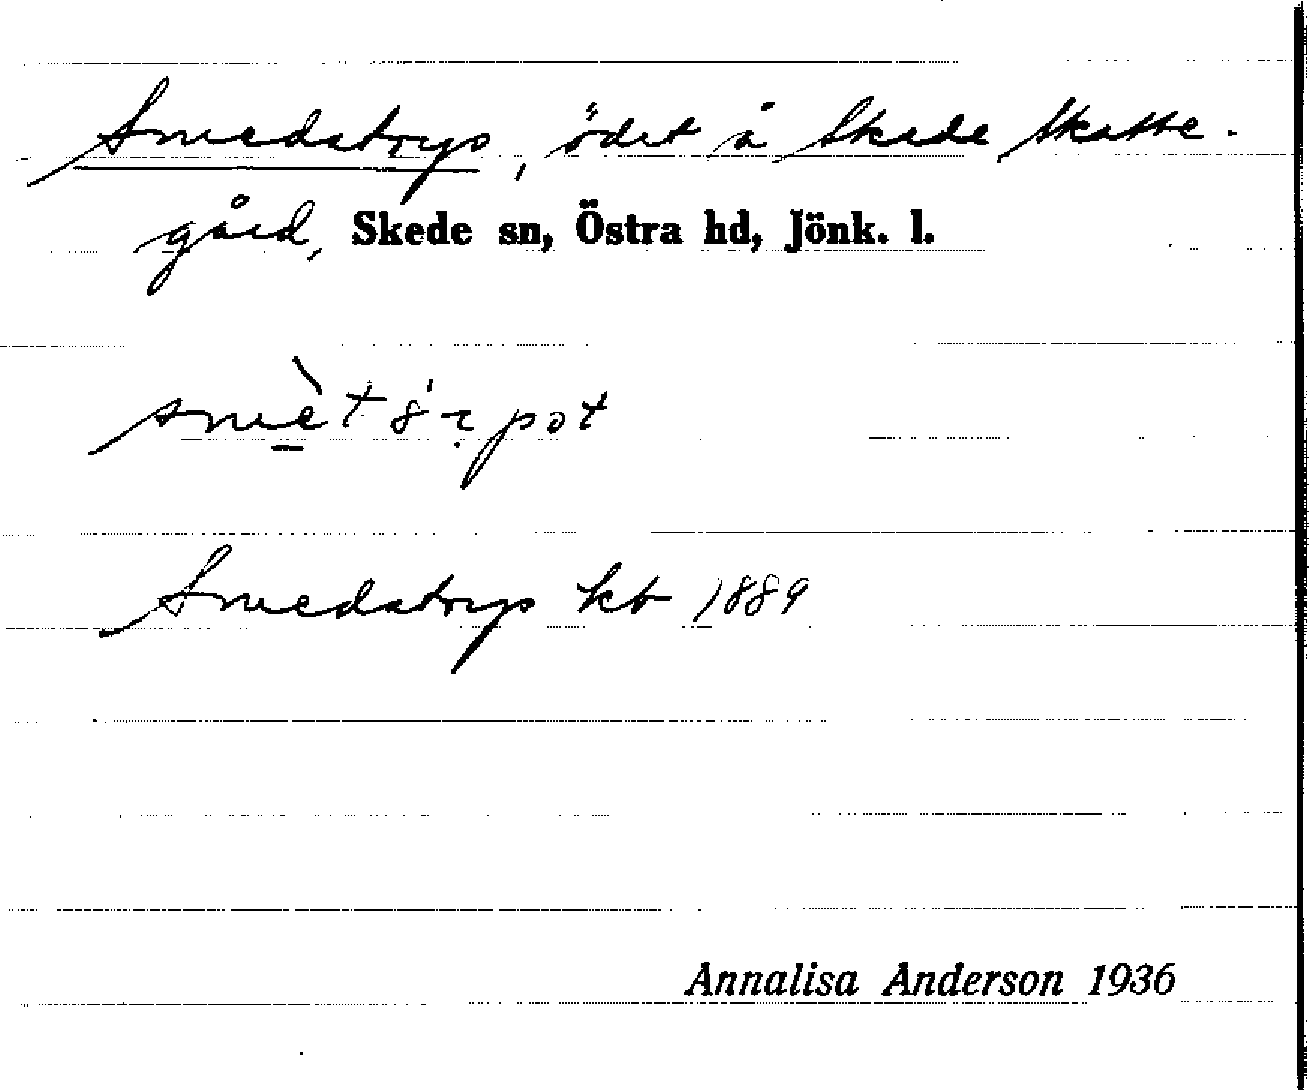 Smedstorp, ödet å Skede Skatte-
gård, Skede sn, Östra hd, Jönk. l.
Smedstorp kb 1889
Annalisa Anderson 1936